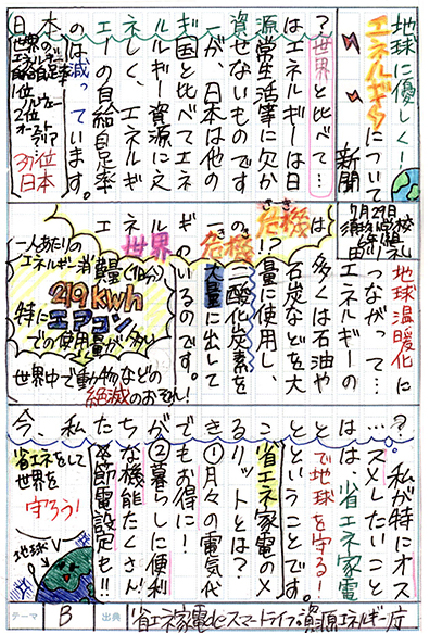 地球に優しく！
エネルギーについて
新聞
7月29日
？世界と比べて…
エネルギーは日
常生活等に欠か
せないものです
が、日本は他の
国と比べてエネ
ルギー資源に乏
しく、エネルギ
ーの自給自足率
は減っています。
日本の
世界の
1位
ノルウェー
2位
オーストラリア
37位
日本
地球温暖化に
つながって…
エネルギーの
多くは石油や
石炭などを大
量に使用し、
二酸化炭素を
大量に出して
いるのです。
世界の危機は
エネルギーの危機
！？
一人あたりの
エネルギー消費量
219kwh
特に
エアコン
での使用量が多い
世界中で動物などの
絶滅のおそれ！
…？
私が特にオス
スメしたいこと
は、省エネ家電
で地球を守る！
ということです。
省エネ家電のメ
リットとは？
①月々の電気代
もお得に！
②暮らしに便利
な機能たくさん！
節電設定も！！
今、私たちができること
省エネをして
世界を
守ろう！
地球
テーマ
B
出典
省エネ家電でスマートライフ・資源エネルギー庁